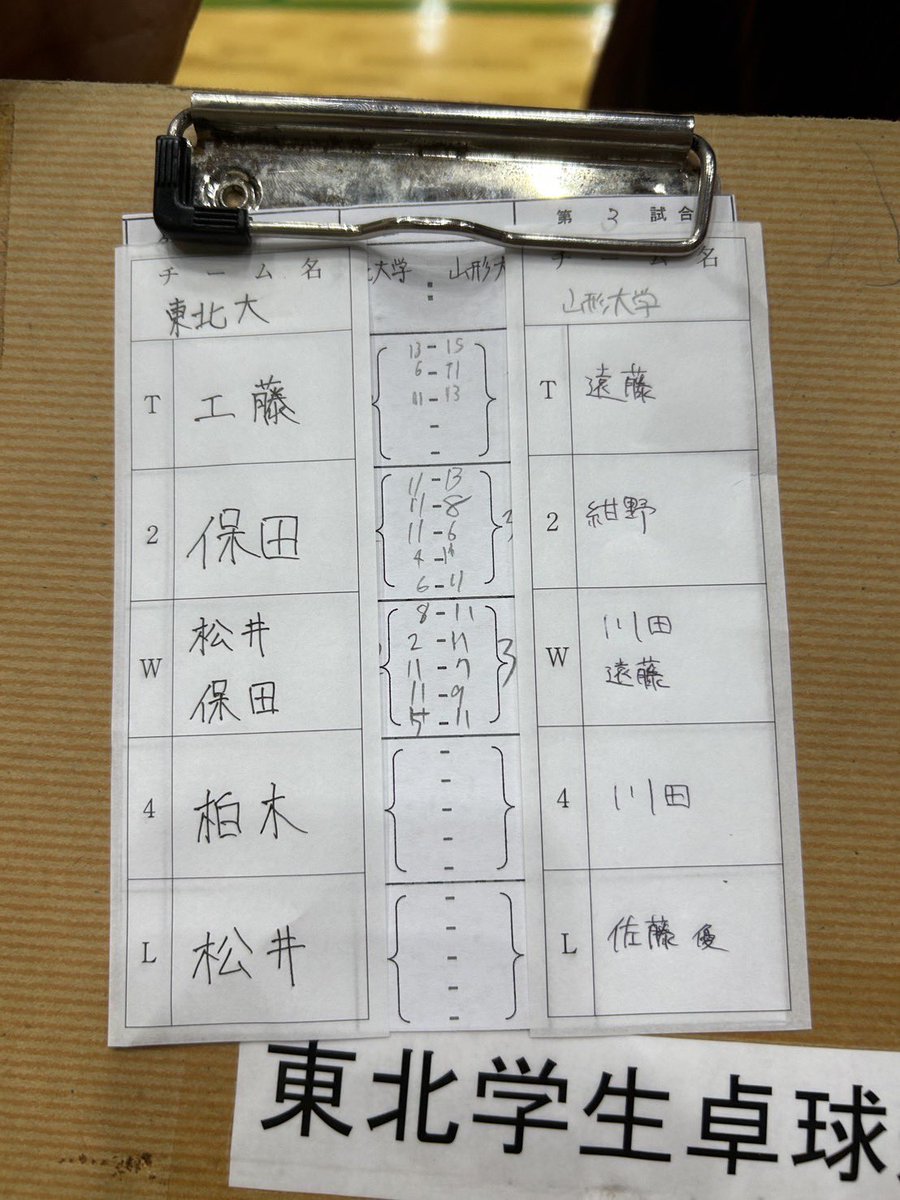 第 3 試合
チーム名
東北大
大学 山形大
:
チーム名
山形大学
T 工藤
13 - 15
6 - 11
11 - 13
-
-
T 遠藤
2 保田
11 - 13
11 - 8
11 - 6
4 - 11
6 - 11
3
2 紺野
W 松井
保田
8 - 11
2 - 11
11 - 7
11 - 9
5 - 11
3
W 川田
遠藤
4 柏木
-
-
-
-
-
4 川田
L 松井
-
-
-
-
-
L 佐藤 優
東北学生卓球